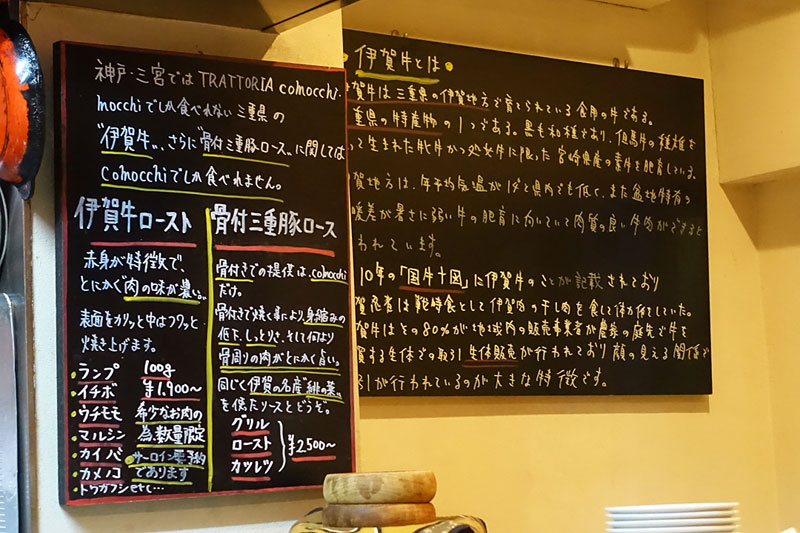 神戸・三宮ではTRATTORIA comocchi・
mocchiでしか食べれない三重県の
"伊賀牛"、さらに"骨付三重豚ロース"に関しては
comocchiでしか食べれません。
伊賀牛ロースト
赤身が特徴で、
とにかく"肉の味が濃い"。
表面をカリッと中はフワッと
焼き上げます。
・ランプ 100g
・イチボ ¥1,900〜
・ウチモモ 希少なお肉の
・マルシン 為、数量限定
・カイノミ ・サーロイン要予約
・カメノコ であります
・トウガラシetc...
骨付三重豚ロース
骨付きでの提供は、comocchi
だけ。
骨付きで焼く事により、身縮みの
低下、しっとりさ、そして何より
骨周りの肉がとにかく旨い。
同じく伊賀の名産"緋の菜"
を使たソースとどうぞ。
グリル
ロースト ¥2,500〜
カツレツ
・伊賀牛とは・
賀牛は三重県の伊賀地方で育てられている食用の牛である。
重県の特産物の1つである。黒毛和種であり、但馬牛の種雄を
って生まれた牝牛かつ処女牛に限った宮崎県産の素牛を肥育している。
賀地方は、年平均気温が14°と県内でも低く、また盆地特有の
暖差が暑さに弱い牛の肥育に向いていて肉質の良い牛肉ができると
われています。
10年の「国牛十図」に伊賀牛のことが記載されており
賀忍者は戦時食として伊賀肉の干し肉を食して体力保てしていた。
賀牛はその80%が地域内の販売事業者が農家の庭先で牛を
買する生体での取引 生体販売が行われており顔の見える関係で
引が行われているのが大きな特徴です。